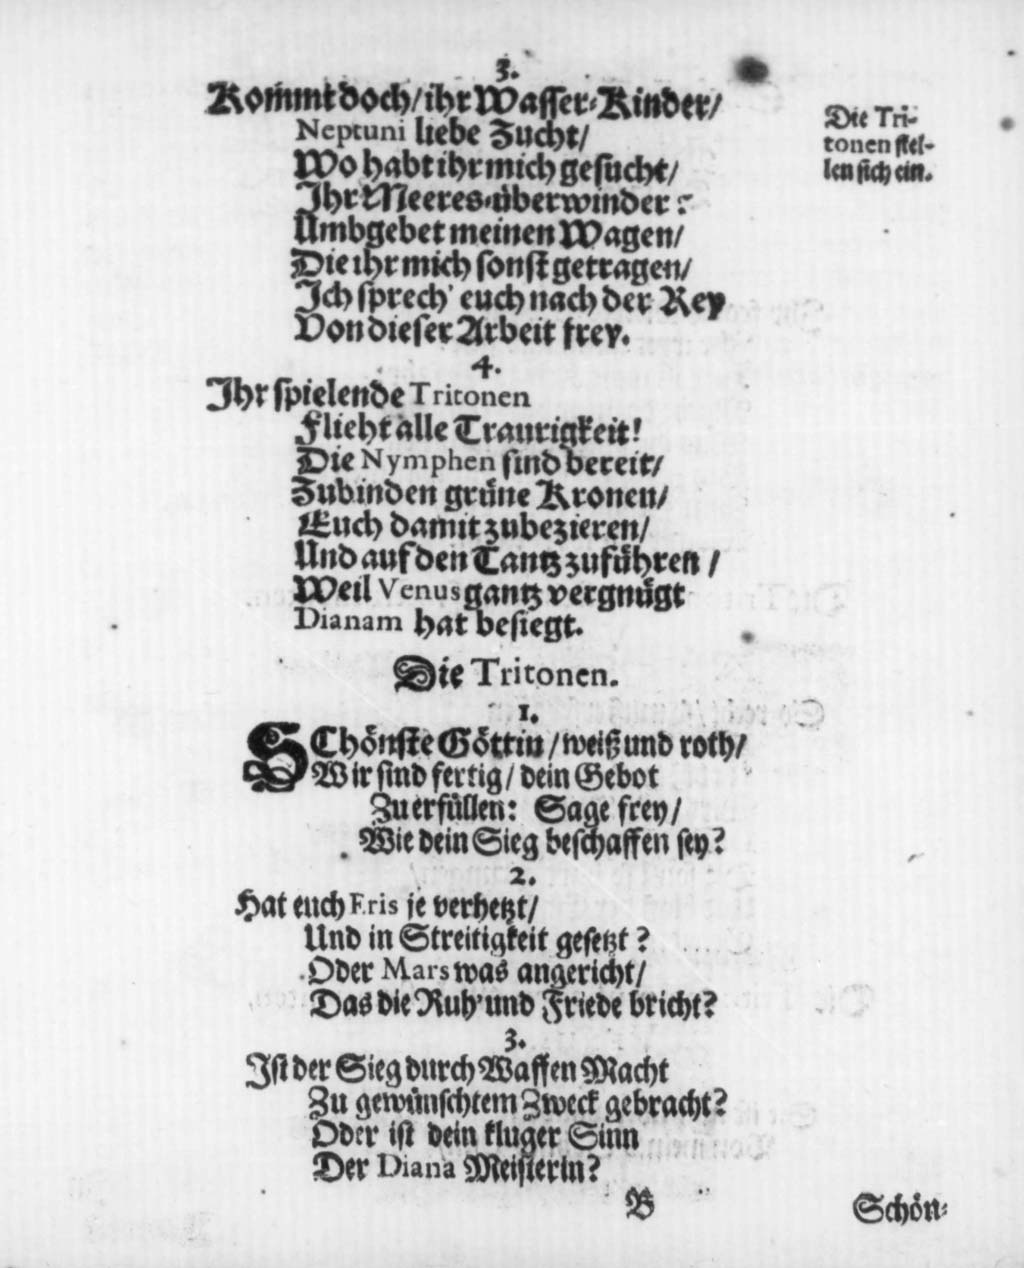 3.
Kommt doch/ ihr Wasser-Kinder/
Neptuni liebe Zucht/
Wo habt ihr mich gesucht/
Ihr Meeres-überwinder:
Umbgebet meinen Wagen/
Die ihr mich sonst getragen/
Ich sprech' euch nach der Rey
Von dieser Arbeit frey.
Die Tri-
tonen stel-
len sich ein.
4.
Ihr spielende Tritonen
Flieht alle Traurigkeit!
Die Nymphen sind bereit/
Zubinden grüne Kronen/
Euch damit zubezieren/
Und auf den Tantz zuführen/
Weil Venus gantz vergnügt
Dianam hat besiegt.
Die Tritonen.
1.
SChönste Göttin/ weiß und roth/
Wir sind fertig/ dein Gebot
Zu erfüllen: Sage frey/
Wie dein Sieg beschaffen sey?
2.
Hat euch Eris je verhetzt/
Und in Streitigkeit gesetzt?
Oder Mars was angericht/
Das die Ruh' und Friede bricht?
3.
Ist der Sieg durch Waffen Macht
Zu gewünschtem Zweck gebracht?
Oder ist dein kluger Sinn
Der Diana Meisterin?
B
Schön-